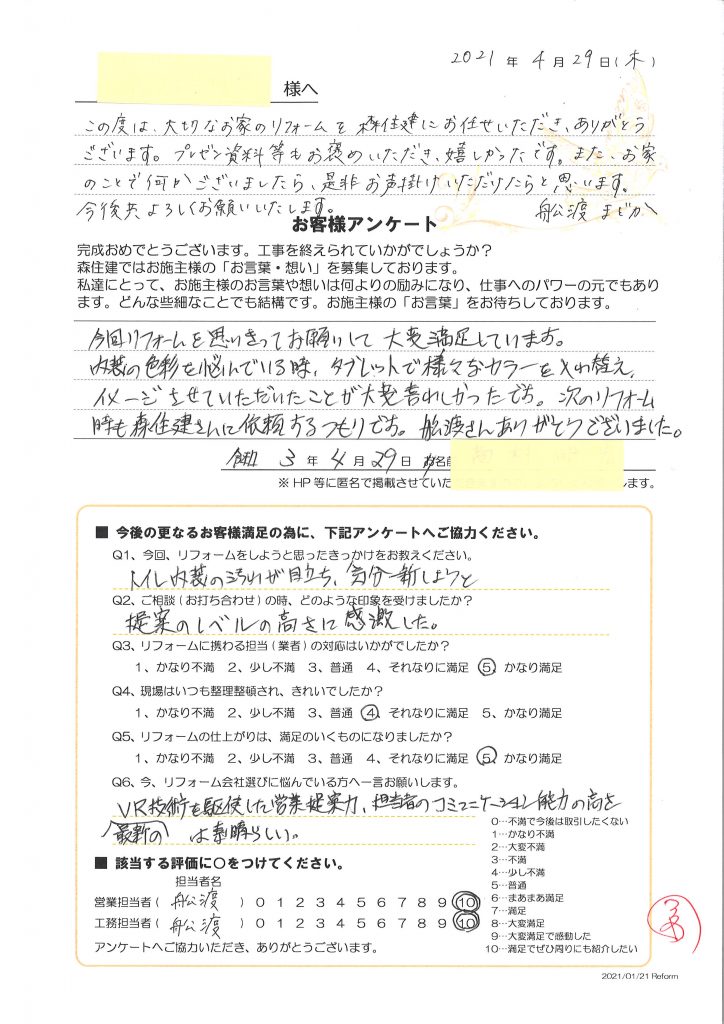 2021年 4月29日(木)
様へ
この度は、大切なお家のリフォームを森住建にお任せいただき、ありがとう
ございます。プレゼン資料等もお褒めいただき、嬉しかったです。また、お家
のことで何かございましたら、是非お声掛けいただけたらと思います。
今後共よろしくお願いいたします。 舩渡 まどか
お客様アンケート
完成おめでとうございます。工事を終えられていかがでしょうか？
森住建ではお施主様の「お言葉・想い」を募集しております。
私達にとって、お施主様のお言葉や想いは何よりの励みになり、仕事へのパワーの元でもあり
ます。どんな些細なことでも結構です。お施主様の「お言葉」をお待ちしております。
今回リフォームを思いきってお願いして大変満足しています。
内装の色彩を悩んでいる時、タブレットで様々なカラーを入れ替え、
イメージさせていただいたことが大変喜わしかったです。次のリフォーム
時も森住建さんに依頼するつもりです。舩渡さんありがとうございました。
令和 3年 4月 29日 お名前
※HP等に匿名で掲載させていた します。
■ 今後の更なるお客様満足の為に、下記アンケートへご協力ください。
Q1、今回、リフォームをしようと思ったきっかけをお教えください。
トイレ内装の汚れが目立ち、気分一新しようと
Q2、ご相談(お打ち合わせ)の時、どのような印象を受けましたか？
提案のレベルの高さに感激した。
Q3、リフォームに携わる担当(業者)の対応はいかがでしたか？
1、かなり不満 2、少し不満 3、普通 4、それなりに満足 5、かなり満足
Q4、現場はいつも整理整頓され、きれいでしたか？
1、かなり不満 2、少し不満 3、普通 4、それなりに満足 5、かなり満足
Q5、リフォームの仕上がりは、満足のいくものになりましたか？
1、かなり不満 2、少し不満 3、普通 4、それなりに満足 5、かなり満足
Q6、今、リフォーム会社選びに悩んでいる方へ一言お願いします。
VR技術を駆使した営業提案力、担当者のコミュニケーション能力の高さ
最新の は素晴らしい。
0…不満で今後は取引したくない
1…かなり不満
2…大変不満
3…不満
4…少し不満
5…普通
6…まあまあ満足
7…満足
8…大変満足
9…大変満足で感動した
10…満足でぜひ周りにも紹介したい
■ 該当する評価に○をつけてください。
担当者名
営業担当者( 舩渡 )0 1 2 3 4 5 6 7 8 9 10
工務担当者( 舩渡 )0 1 2 3 4 5 6 7 8 9 10
アンケートへご協力いただき、ありがとうございます。
2021/01/21 Reform